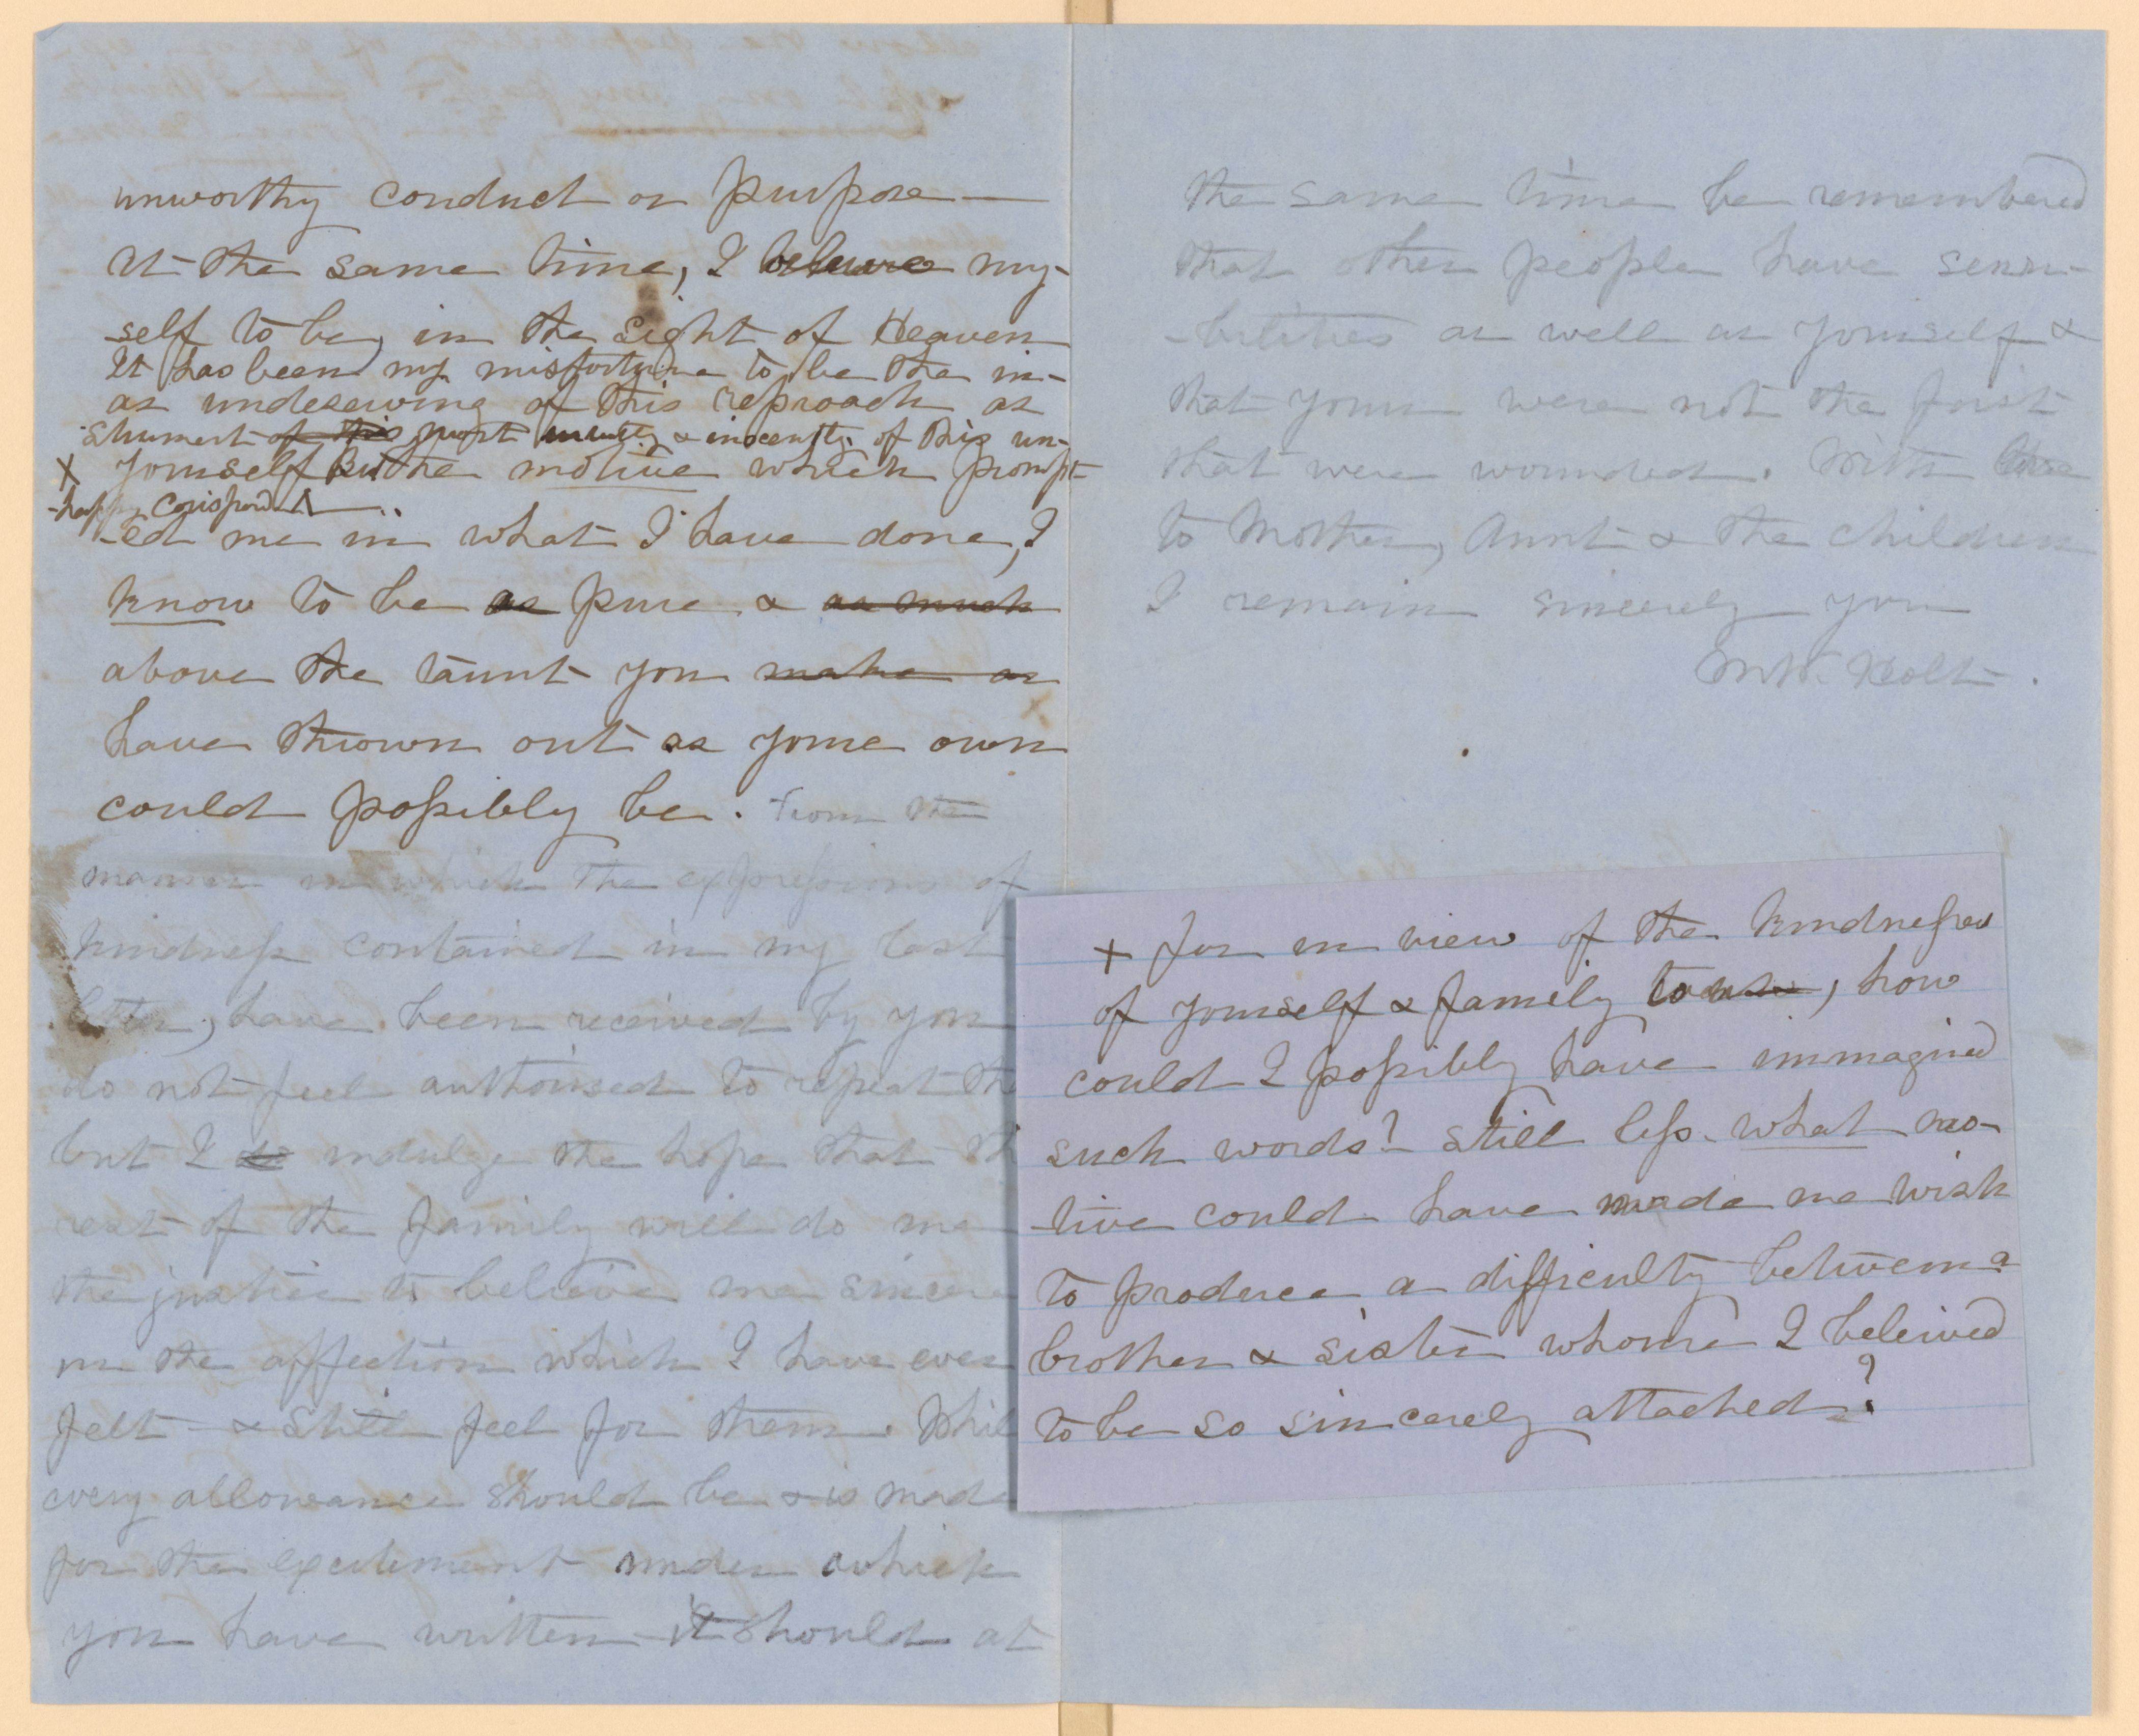 unworthy conduct or purpose —
At the same time, I believe my-
-self to be, in the sight of Heaven
It has been my misfortune to be the in-
as undeserving of this reproach as
-strument of this most unwitting & innocently of this un-
x yourself But the motive which prompt-
-happy correspond
-ed me in what I have done, I
know to be as pure & as much
above the taunt you make or
have thrown out as yours own
could possibly be. From the
manner in which the expressions of
kindness contained in my last
letter, have been received by you
do not feel authorised to repeat the
but I indulge the hope that th
rest of the family will do me
the justice to believe me sincere
in the affection which I have ever
felt & still feel for them. Whil
every allowance should be & is made
for the excitement under which
you have written it should at
the same time be remembered
that other people have sensi-
-bilities as well as yourself &
that yours were not the first
that were wounded. With love
to Mother, Aunt & the children
I remain sincerely your
M.W. Holt.
+ For in view of the kindnesses
of yourself & family to me, how
could I possibly have immagined
such words? Still less what mo-
-tive could have made me wish
to produce a difficulty between a
brother & sister whome I beleived
to be so sincerely attached?